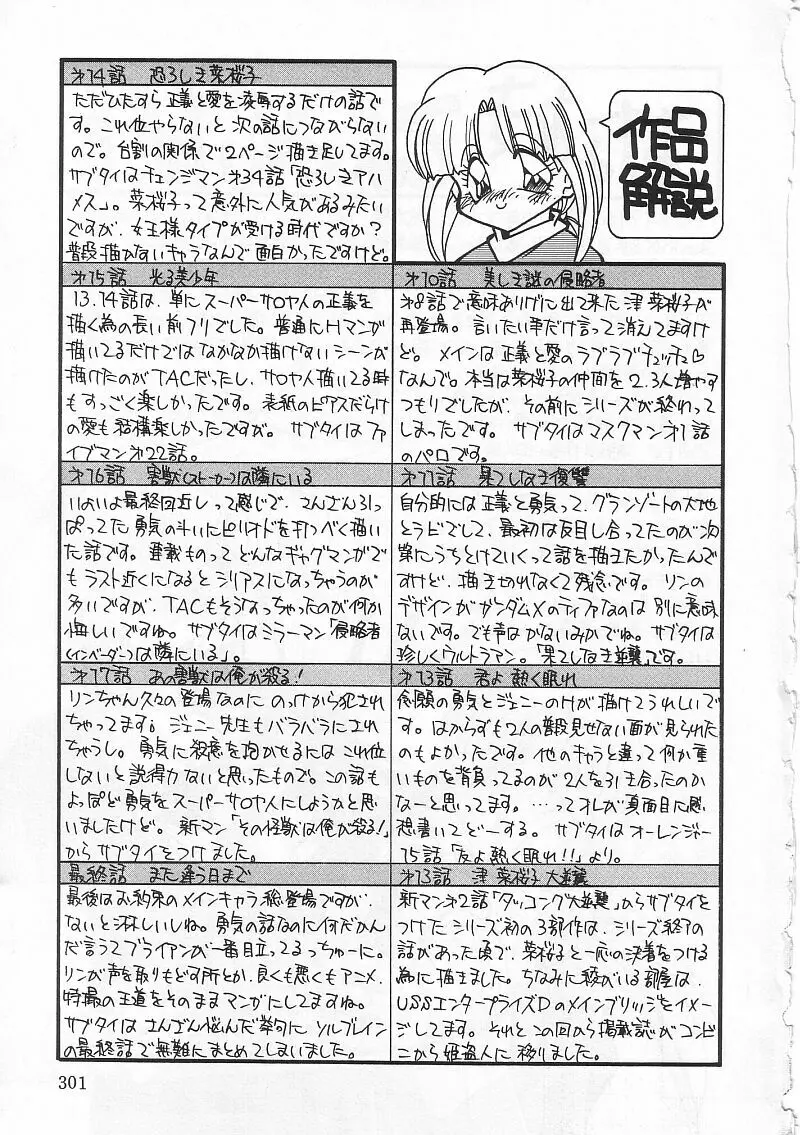 作品
解説
第10話 美しき謎の侵略者
第8話で意味ありげに出て来た津菜桜子が
再登場。言いたい事だけ言って消えてますけ
ど。メインは正義と愛のラブラブチュッチュ♡
なんで。本当は菜桜子の仲間を2.3人増やす
つもりでしたが、その前にシリーズが終わって
しまったです。サブタイはマスクマン第1話
のパロです。
第11話 果てしなき復讐
自分的には正義と勇気って、グランゾートの大地
とラビでして、最初は反目し合ってたのが次
第にうちとけていくって話を描きたかったんで
すけど、描き切れなくて残念です。リンの
デザインがガンダムXのティファなのは別に意味
ないです。でも声はかないみかでね。サブタイは
珍しくウルトラマン。「果てしなき逆襲」です。
第13話 君よ熱く眠れ
念願の勇気とジェニーのHが描けてうれしいで
す。はからずも2人の普段見せない面が見られた
のもよかったです。他のキャラと違って何か重
いものを背負ってるのが2人を引き合ったのか
なーと思ってます。…ってオレが真面目に感
想書いてどーする。サブタイはオーレンジャー
15話「友よ熱く眠れ!!」より。
第13話 津 菜桜子 大逆襲
新マン第2話「タッコング大逆襲」からサブタイを
つけたシリーズ初の3部作は、シリーズ終了の
話があった頃で、菜桜子と一応の決着をつける
為に描きました。ちなみに彼がいる部屋は、
USSエンタープライズDのメインブリッジをイメー
ジしてます。それとこの回から掲載誌がコンビ
ニから姫盗人に移りました。
第14話 恐ろしき菜桜子
ただひたすら正義と愛を凌辱するだけの話で
す。これ位やらないと次の話につながらない
ので。台割の関係で2ページ描き足してます。
サブタイはチェンジマン第34話「恐ろしきアハ
メス」。菜桜子って意外に人気があるみたい
ですが、女王様タイプが受ける時代ですか?
普段描かないキャラなんで面白かったですけど。
第15話 光る美少年
13.14話は、単にスーパーサロヤ人の正義を
描く為の長い前フリでした。普通にHマンガ
描いてるだけではなかなか描けないシーンが
描けたのがTACだったし、サロヤ人描いてる時
もすっごく楽しかったです。表紙のピアスだらけ
の愛も結構楽しかったですが。サブタイはファ
イブマン第22話。
第16話 害獣(ストーカー)は隣にいる
いよいよ最終回近しって感じで、さんざん引っ
ぱってた勇気の斗いにピリオドを打つべく描い
た話です。連載ものってどんなギャグマンガで
もラスト近くになるとシリアスになっちゃうのが
多いですが、TACもそうなっちゃったのが何か
悔しいですね。サブタイはミラーマン「侵略者
(インベーダー)は隣にいる」。
第17話 あの害獣は俺が殺る!
リンちゃん久々の登場なのにのっけから犯され
ちゃってます。ジェニー先生もバラバラにされ
ちゃうし。勇気に殺意を抱かせるにはこれ位
しないと説得力ないと思ったもので。この話も
よっぽど勇気をスーパーサロヤ人にしようかと思
いましたけど。新マン「その怪獣は俺が殺る!」
からサブタイをつけました。
最終話 また逢う日まで
最後はお約束のメインキャラ総登場ですが、
ないと淋しいしね。勇気の話なのに何だかん
だ言うてブライアンが一番目立ってるっちゅーに。
リンが声を取りもどす所とか、良くも悪くもアニメ、
特撮の王道をそのままマンガにしてますね。
サブタイはさんざん悩んだ挙句にソルブレイン
の最終話で無難にまとめてしまいました。
301